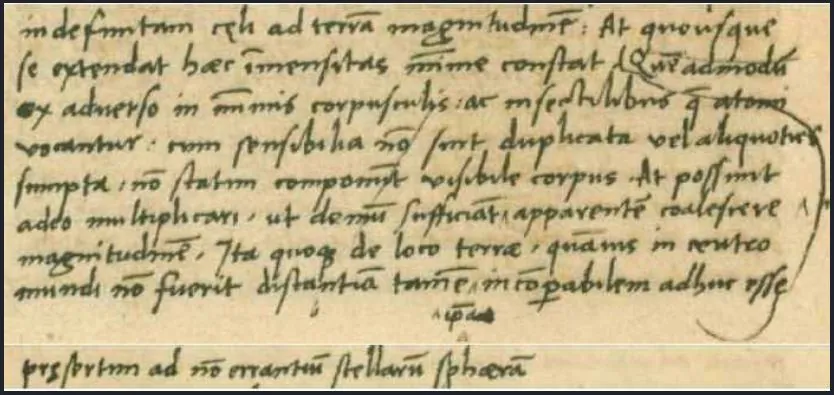 indefinitam cęli ad terrā magnitudinē : At quousque
se extendat hæc īmensitas mīnīme constat . Quēadmodū
ex adverso in mīnīmis corpusculis . ac insectilibus q̄ atomi
vocantur . cum sensibilia nō sint duplicata vel aliquoties
sumpta . nō statim componūt visibile corpus . At possunt
adeo multiplicari . ut demū sufficiāt apparentē coalescere
magnitudinē . Ita quoque de loco terræ . quāvis in centro
mundi nō fuerit distantiā tamē incōparabilem adhuc esse
ipā
pręsertim ad nō errantiū stellarū sphærā